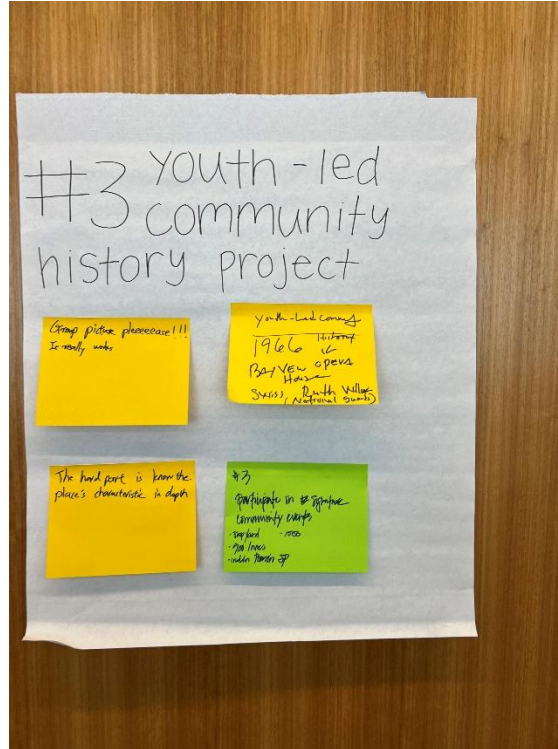 #3 youth-led
community
history project
Group picture pleeeease!!!
It really works
youth-led commy
History
1966
BAYVEW opera
House
Swiss, Ruth
(National Guards)
The hard part is know the
place's characteristic in depth
#3
participate in signature
community events